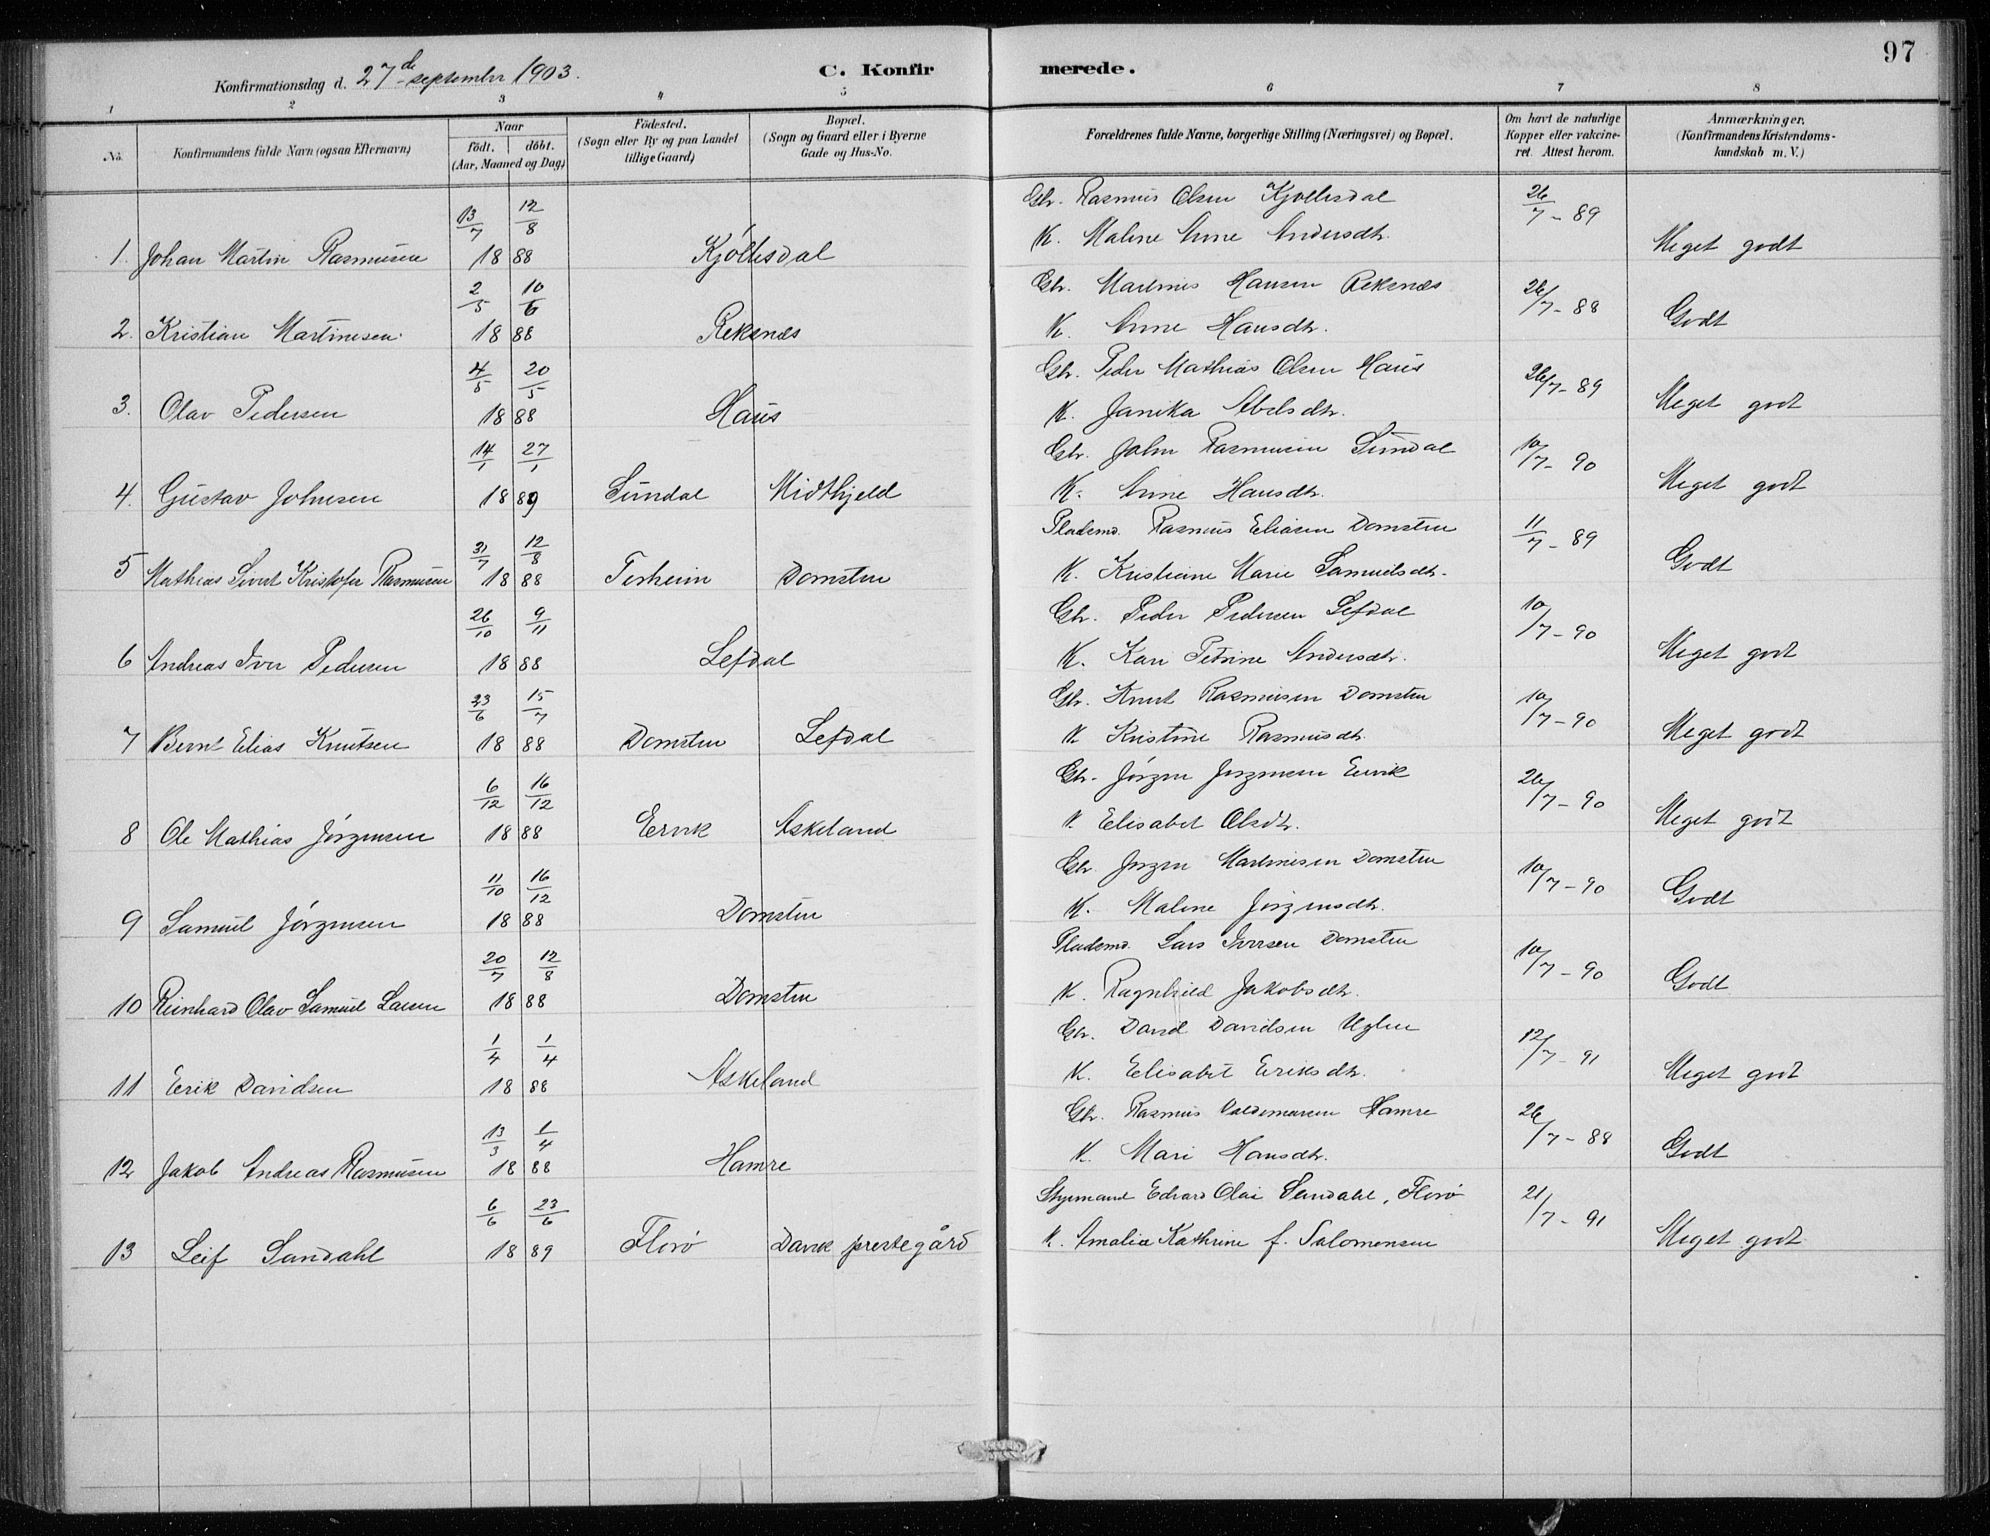 97
Konfirmationsdag d. 27de september 1903.
C. Konfirmerede.
1 2 3 4 5 6 7 8
No. Konfirmandens fulde Navn (ogsaa Efternavn) Naar födt. döbt. (Aar, Maaned og Dag) Födested. (Sogn eller By og paa Landet tillige Gaard) Bopæl. (Sogn og Gaard eller i Byerne Gade og Hus-No. Forældrenes fulde Navne, borgerlige Stilling (Næringsvei) og Bopæl. Om havt de naturlige Kopper eller vakcineret. Attest herom. Anmærkninger. (Konfirmandens Kristendomskundskab m. V.)
13/7 12/8 Gbr. Rasmus Olsen Kjøllesdal 26/7-89
1. Johan Martin Rasmusen 1888 Kjøllesdal K. Malene Anne Andersdtr. Meget godt
2/5 10/6 Gbr. Martinus Hansen Reksnæs 26/7-88
2. Kristian Martinusen 1888 Reksnæs K. Anne Hansdtr. Godt
4/5 20/5 Gbr. Peder Mathias Olsen Haus 26/7-89
3. Olav Pedersen 1888 Haus K. Janika Abelsdtr. Meget godt
14/1 27/1 Gbr. John Rasmusen Sundal 10/7-90
4. Gustav Johnsen 1889 Sundal Midthjeld K. Anne Hansdtr. Meget godt
31/7 12/8 Pladsmd. Rasmus Eliasen Domsten 11/7-89
5 Mathias Sivert Kristofer Rasmusen 1888 Terheim Domsten K. Kristiane Marie Samuelsdtr. Godt
26/10 9/11 Gbr. Peder Pedersen Lefdal 10/7-90
6 Andreas Iver Pedersen 1888 Lefdal K. Kari Petrine Andersdtr. Meget godt
23/6 15/7 Gbr. Knut Rasmusen Domsten 10/7-90
7 Bernt Elias Knutsen 1888 Domsten Lefdal K Kristine Rasmusdtr. Meget godt
6/12 16/12 Gbr. Jörgen Jorgensen Ervik 26/7-90
8 Ole Mathias Jörgensen 1888 Ervik Askeland K. Elisabet Olsdtr. Meget godt
11/10 16/12 Gbr. Jorgen Martinusen Domsten 10/7-90
9 Samuel Jörgensen 1888 Domsten K. Malene Jörgensdtr. Godt
20/7 12/8 Pladsmd. Lars Iversen Domsten 10/7-90
10 Reinhard Olav Samuel Larsen 1888 Domsten K. Ragnhild Jakobsdtr. Godt
1/4 1/4 Gbr. David Davidsen Uglen 12/7-91
11 Eerik Davidsen 1888 Askeland K. Elisabet Eeriksdtr. Meget godt
13/3 1/4 Gbr. Rasmus Valdemarsen Hamre 26/7-88
12 Jakob Andreas Rasmusen 1888 Hamre K. Mari Hansdtr. Godt
6/6 23/6 Styrmand Edvard Olai Sandahl, Florø 21/7-91
13 Leif Sandahl 1889 Florø Davik prestegård K. Amalia Kathrine f. Salomonsen Meget godt